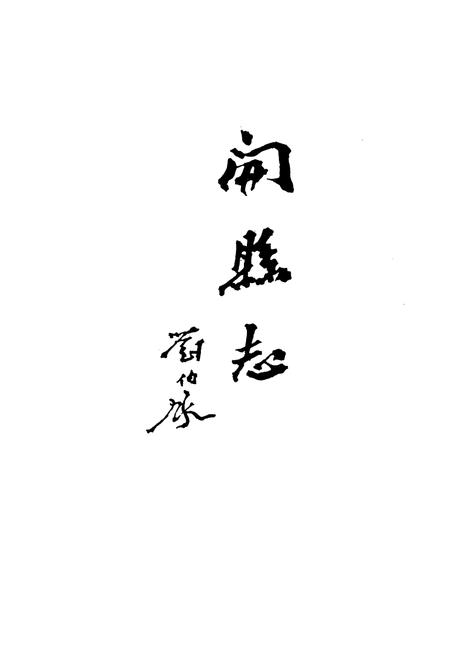 開縣志
劉伯承